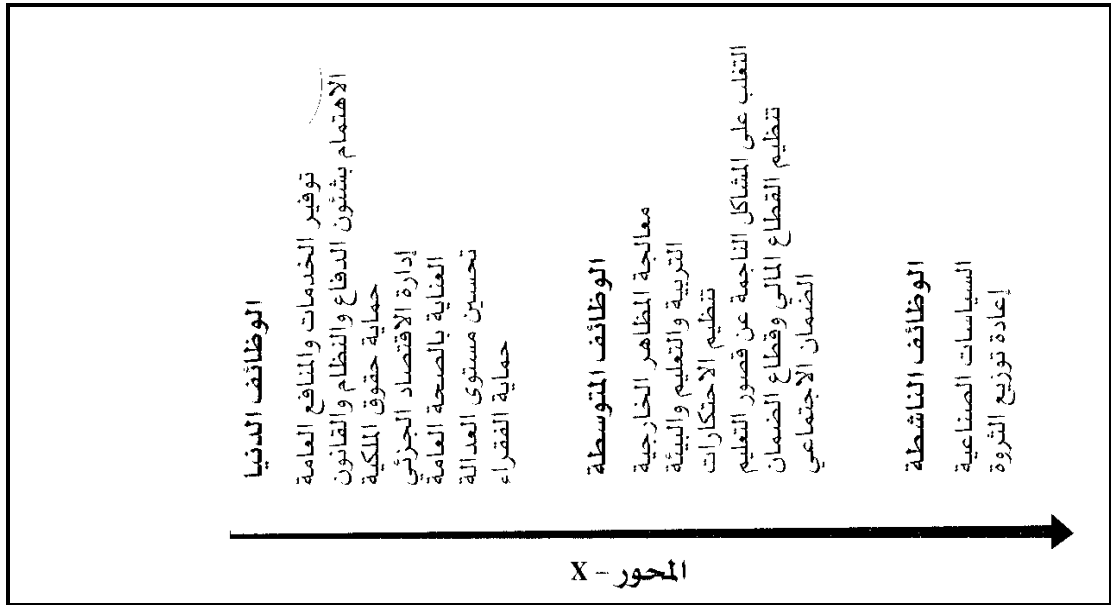 الوظائف الدنيا
توفير الخدمات والمنافع العامة
الاهتمام بشئون الدفاع والنظام والقانون
حماية حقوق الملكية
إدارة الاقتصاد الجزئي
العناية بالصحة العامة
تحسين مستوى العدالة
حماية الفقراء
الوظائف المتوسطة
معالجة المظاهر الخارجية
التربية والتعليم والبيئة
تنظيم الاحتكارات
التغلب على المشاكل الناجمة عن قصور التعليم
تنظيم القطاع المالي وقطاع الضمان
الضمان الاجتماعي
الوظائف الناشطة
السياسات الصناعية
إعادة توزيع الثروة
المحور – X